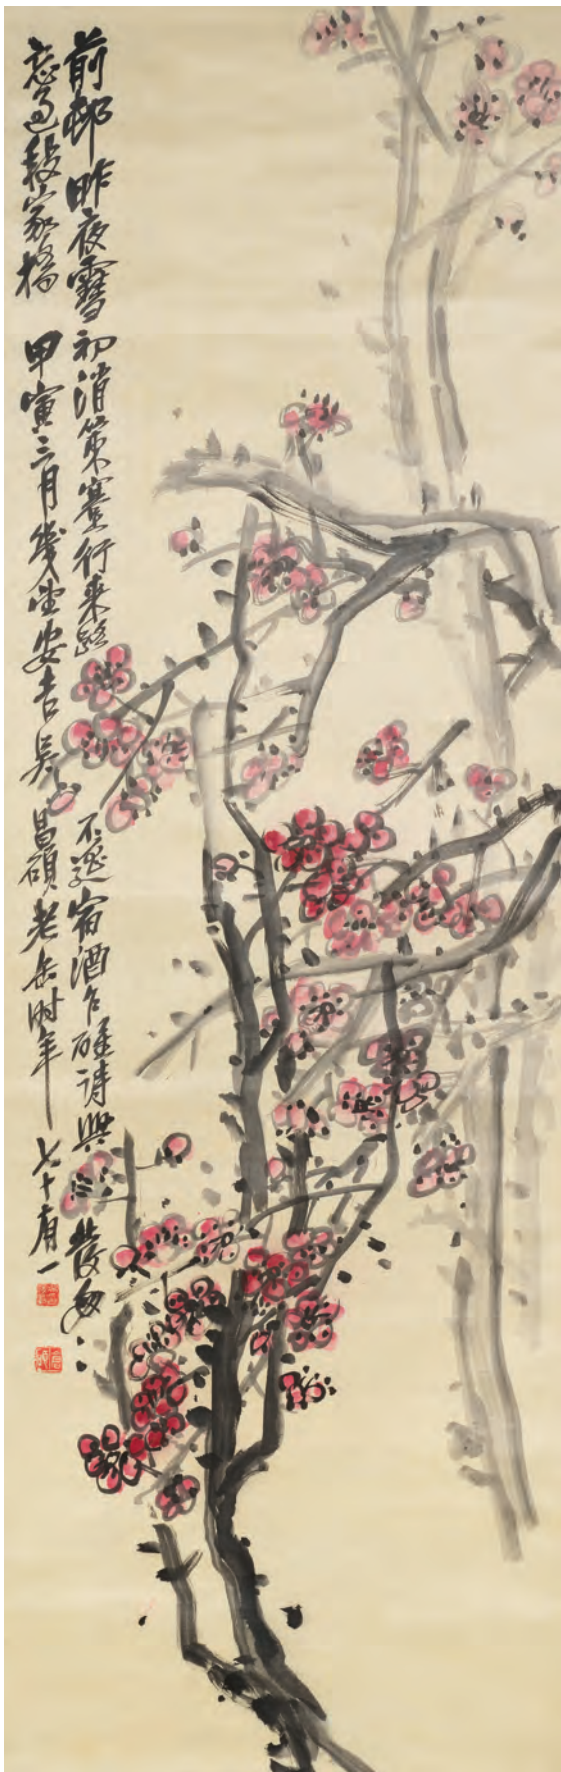 前邨昨夜雪初消策蹇行來路不遙宿酒乍醒詩興發匆〻
忘過段家橋 甲寅三月幾望安吉吳昌碩老缶時年七十有一